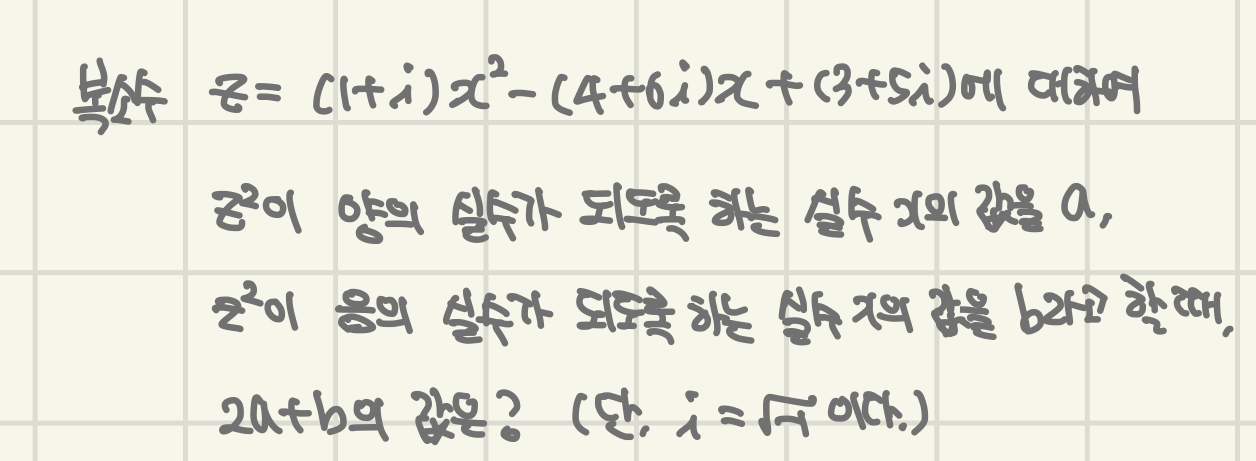 복소수 z = (1+i)x² - (4+6i)x + (3+5i)에 대하여
z²이 양의 실수가 되도록 하는 실수 x의 값을 a,
z²이 음의 실수가 되도록 하는 실수 x의 값을 b라고 할 때,
2a+b의 값은? (단, i = √-1 이다.)